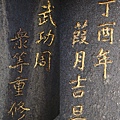 丁酉年
葭月吉旦
武功周
眾等重修